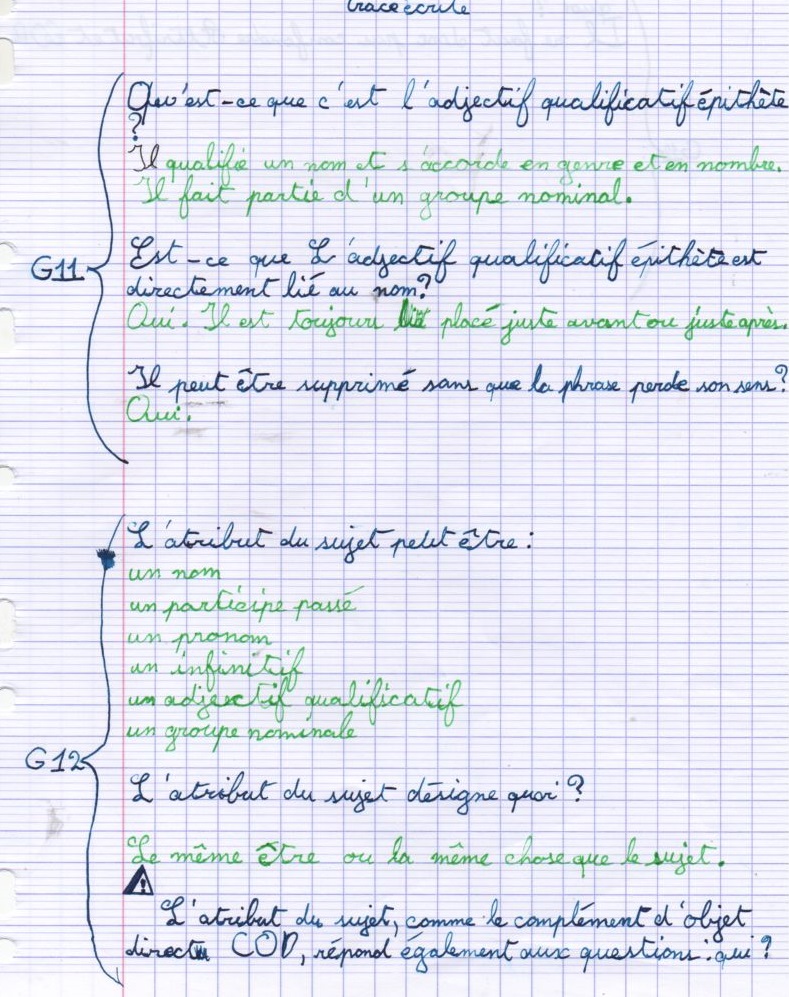 trace écrite
Qu'est-ce que c'est l'adjectif qualificatif épithète
?
Il qualifie un nom et s'accorde en genre et en nombre.
Il fait partie d'un groupe nominal.
G11
Est-ce que L'adjectif qualificatif épithète est
directement lié au nom?
Oui. Il est toujours placé juste avant ou juste après.
Il peut être supprimé sans que la phrase perde son sens?
Oui.
L'atribut du sujet peut être :
un nom
un participe passé
un pronom
un infinitif
un adjectif qualificatif
un groupe nominale
G12
L'atribut du sujet désigne quoi ?
Le même être ou la même chose que le sujet.
L'atribut du sujet, comme le complément d'objet
direct COD, répond également aux questions : qui ?